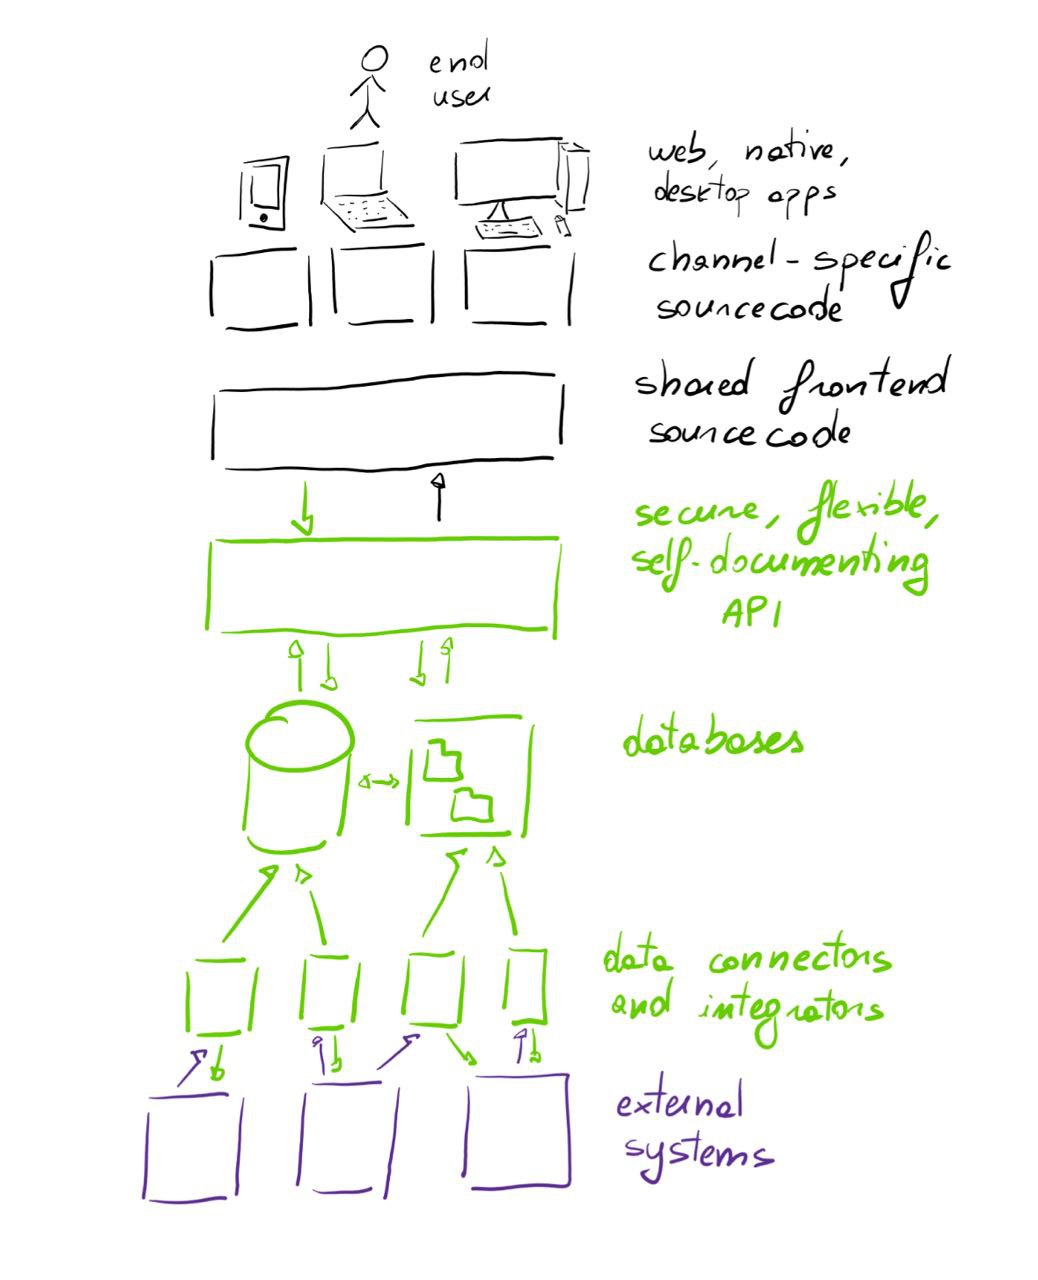 end
user
web, native,
desktop apps
channel-specific
sourcecode
shared frontend
sourcecode
secure, flexible,
self-documenting
API
databases
data connectors
and integrators
external
systems